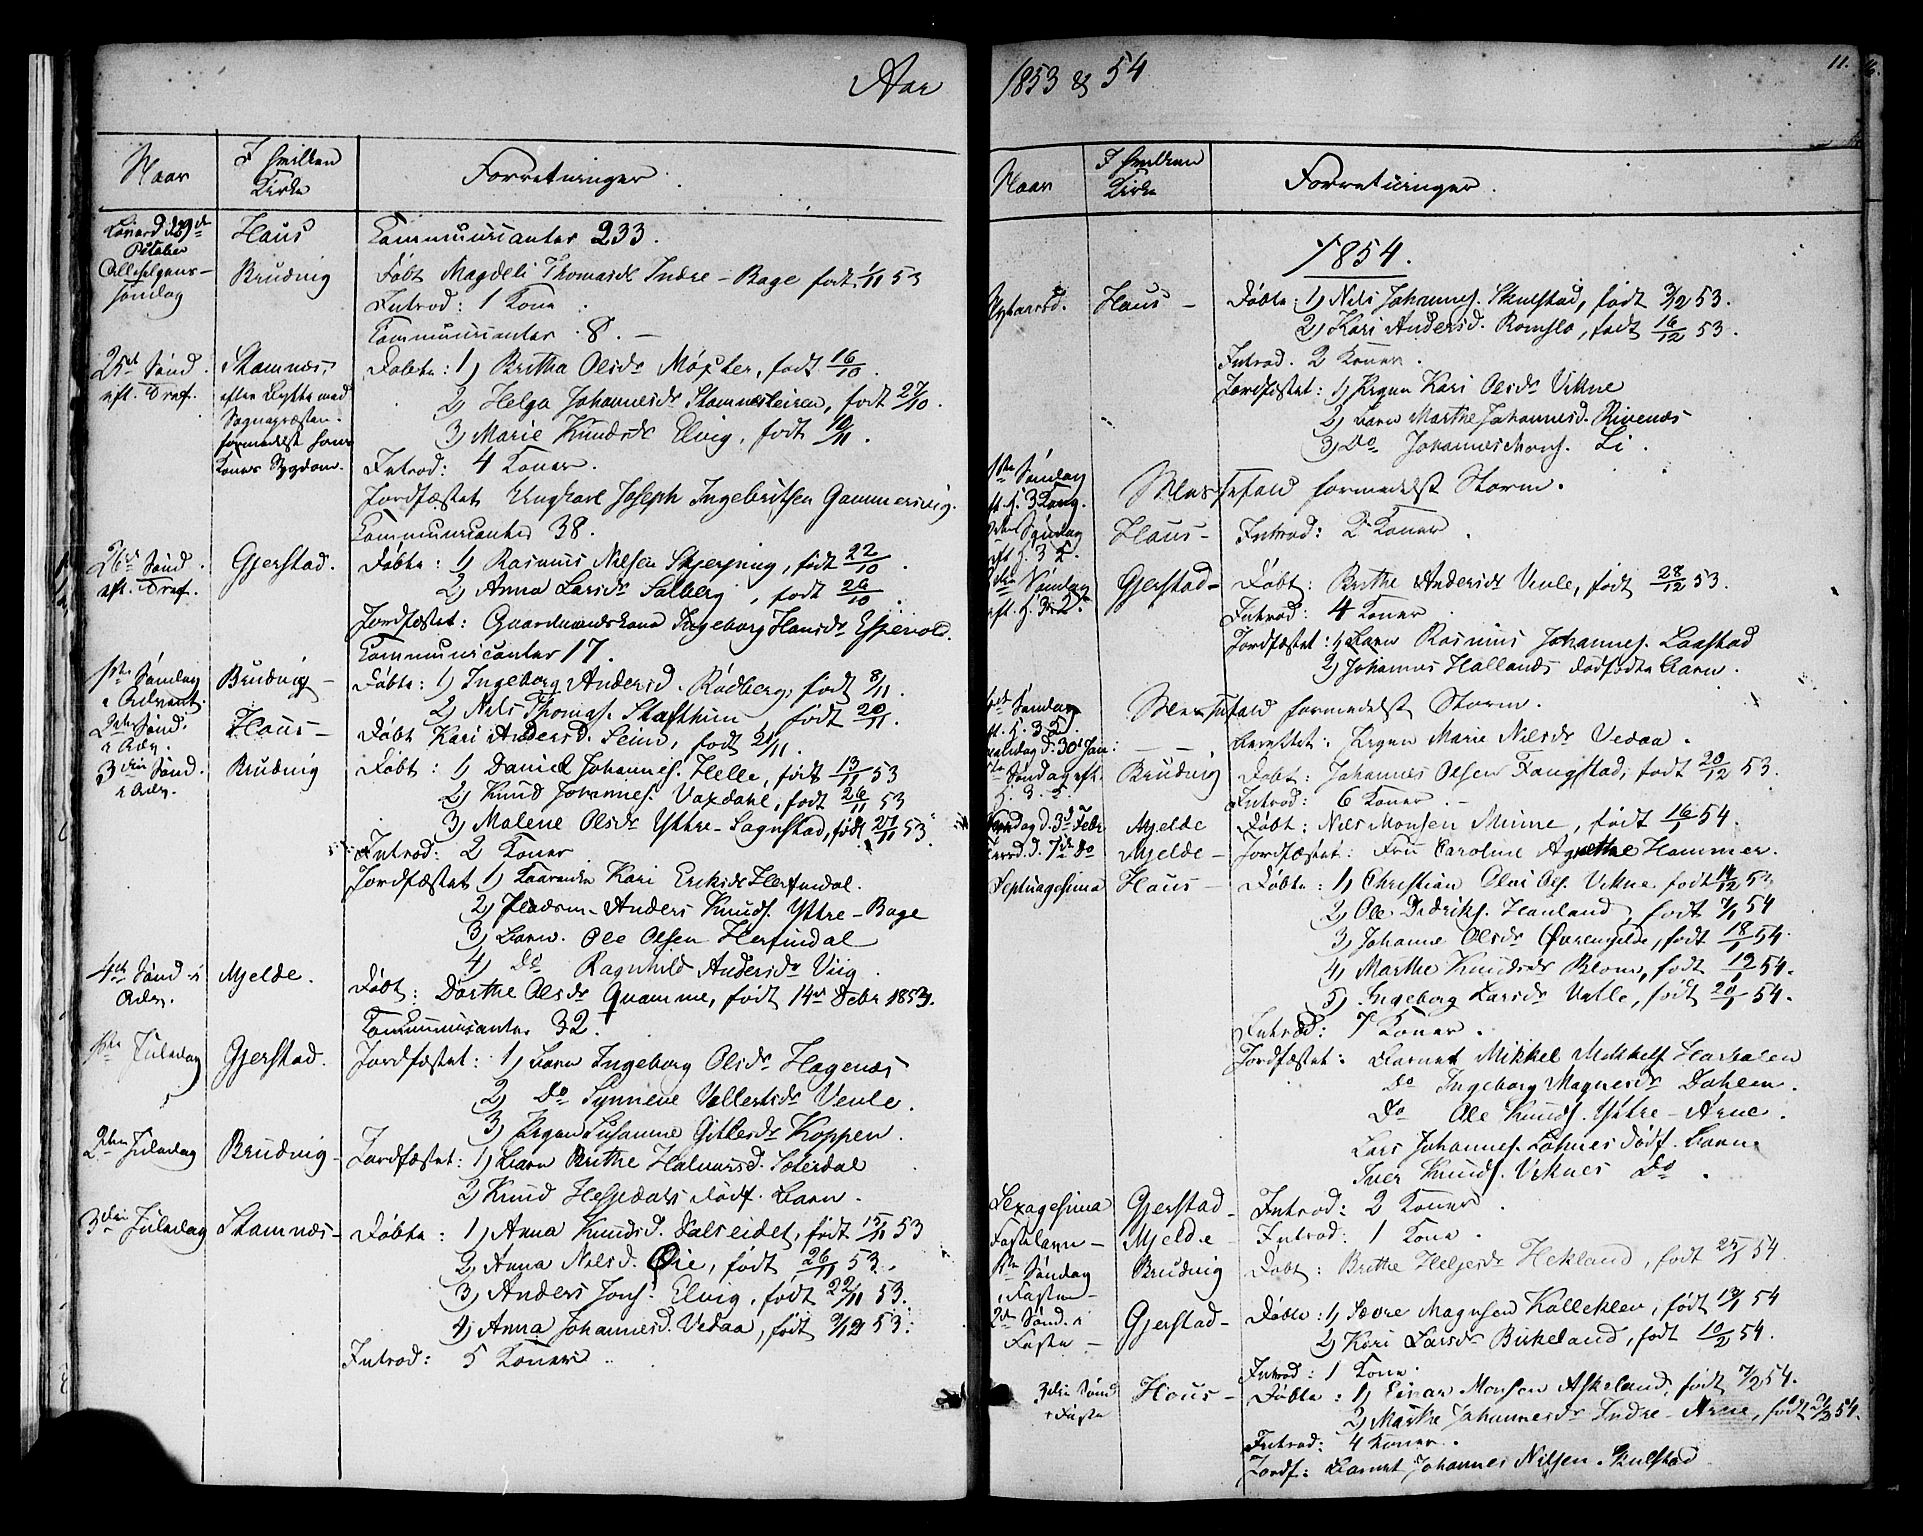 Aar
Naar
I hvilken
Kirke
Forretninger.
Løverd. d. 29de
October
Haus
Communicanter 233.
Allehelgens-
søndag
Brudvig
Døbt Magdeli Thomasdr Indre-Bage født 1/11 53
Introd: 1 Kone.
Communicanter 8. —
25de Sønd.
eft. Tref.
Stamnæs,
efter Bytte med
Sognepræsten
formedelst hans
Kones Sygdom.
Døbte: 1) Brithe Olsdr Møxter, født 16/10.
2) Helga Johannesdr Stamnesleiren, født 27/10.
3) Marie Knudsdr Elvig, født 10/11.
Introd: 4 Koner.
Jordfæstet Ungkarl Joseph Ingebritsen Gammersvig.
Communicanter 38.
26de Sønd.
eft. Tref.
Gjerstad.
Døbte: 1) Rasmus Nilsen Skjerping, født 22/10.
2) Anna Larsdr Solberg, født 26/10.
Jordfæstet: Gaardmandskone Ingeborg Hansdr Espevold.
Communicanter 17.
1ste Søndag
i Advent.
Brudvig —
Døbte: 1) Ingeborg Andersd. Rødberg, født 8/11.
2) Nels Thomas. født 20/11.
2den Sønd.
i Adv.
Haus —
Døbt Kari Andersd. Seim, født 21/11.
3die Sønd.
i Adv.
Brudvig
Døbt: 1) Daniel Johannes. Helle, født 13/11 53
2) Knud Johannes. Vaxdahl, født 26/11 53
3) Malene Olsdr Yttre-Sagnstad, født 27/11 53.
Introd: 2 Koner
Jordfæstet 1) Kaarenke Kari Eriksdr Herfindal.
2) Anders Knuds. Yttre-Bage
3) Barn. Ole Olsen Herfindal
4) Do Ragnhild Andersdr Viig.
4de Sønd i
Adv.
Mjelde.
Døbt: Dorthe Olsdr Quamme, født 14de Debr 1853.
Communicanter 32.
1ste Juledag
Gjerstad.
Jordfæstet: 1) Barn Ingeborg Olsdr Hagenæs
2) Do Synneve Vellertsdr Venle.
3) Pigen Susanne Gitlesdr Koppen.
2den Juledag
Brudvig —
Jordfæstet: 1) Barn Brithe Halvorsd. Sæterdal
2) Knud Hesjedals dødf. Barn.
3die Juledag
Stamnæs —
Døbte: 1) Anna Knudsd. Dalseidet, født 15/11 53
2) Anna Nilsd. Øie, født 26/11 53.
3) Anders Jons. Elvig, født 22/11 53.
4) Anna Johannesd. Vedaa, født 9/12 53.
Introd: 5 Koner.
1853 & 54
11.
Naar
I hvilken
Kirke
Forretninger.
1854.
Nytaarsd.
Haus —
Døbte: 1) Nils Johannes. Skulstad, født 3/12 53.
2) Kari Andersd. Romslo, født 16/12 53.
Introd. 2 Koner.
Jordfæstet: 1) Pigen Kari Olsdr Vikne
2) Barn Marthe Johannesd. Rivenæs
3) Do Johannes Mons. Li.
1ste Søndag
eft. H. 3 Kong.
Messefald formedelst Storm.
2den Søndag
eft. H. 3 K.
Haus —
Introd: 2 Koner.
3die Søndag
eft. H. 3 K.
Gjerstad —
Døbt: Brithe Andersdr Venle, født 28/12 53.
Introd: 4 Koner.
Jordfæstet: 1) Barn Rasmus Johannes. Laastad
2) Johannes Hallands dødfødte Barn.
4de Søndag
eft. H. 3 K.
Messefald formedelst Storm.
Mandag d. 30te Jan:
— —
Berettet: Pigen Marie Nilsdr Vedaa.
5te Søndag eft.
H. 3 K.
Brudvig
Døbt: Johannes Olsen Fangstad, født 20/12 53.
Introd: 6 Koner. —
Fredag d. 3de Febr
Mjelde
Døbt: Nils Monsen Mime, født 16/1 54.
Tirsd. d. 7de Do
Mjelde —
Jordfæstet: Fru Caroline Agnethe Hammer.
Septuagesima
Haus —
Døbte: 1) Christian Olai Ols. Vikne født 14/12 53
2) Ole Didriks. Hanland, født 7/1 54
3) Johanne Olsdr Øvremjelde, født 18/1 54.
4) Marthe Knudsdr Blom, født 19/1 54.
5) Ingeborg Larsdr Valle, født 20/1 54.
Introd: 7 Koner.
Jordfæstet: Barnet Mikkel Mikkels. Hartalen
Do Ingeborg Magnesdr Dahlen.
Do Ole Knuds. Yttre-Arne.
Lars Johannes. Løtnes dødf. Barn
Iver Knuds. Viknes Do.
Sexagesima
Gjerstad —
Introd: 2 Koner.
Fastelavn —
Mjelde —
Introd: 1 Kone.
1ste Søndag
i Fasten —
Brudvig
Døbt: Brithe Helgesdr Hekland, født 25/1 54.
2de Sønd. i
Faste —
Gjerstad —
Døbte: 1) Sevre Magnsen Kalleklev, født 13/1 54
2) Kari Larsdr Birkeland, født 10/2 54.
Introd: 1 Kone.
3die Sønd
i Faste
Haus —
Døbte: 1) Einar Monsen Askeland, født 7/2 54.
2) Marthe Johannesdr Indre-Arne, født 21/2 54.
Introd: 4 Koner.
Jordf: Barnet Johannes Nilsen Skulstad